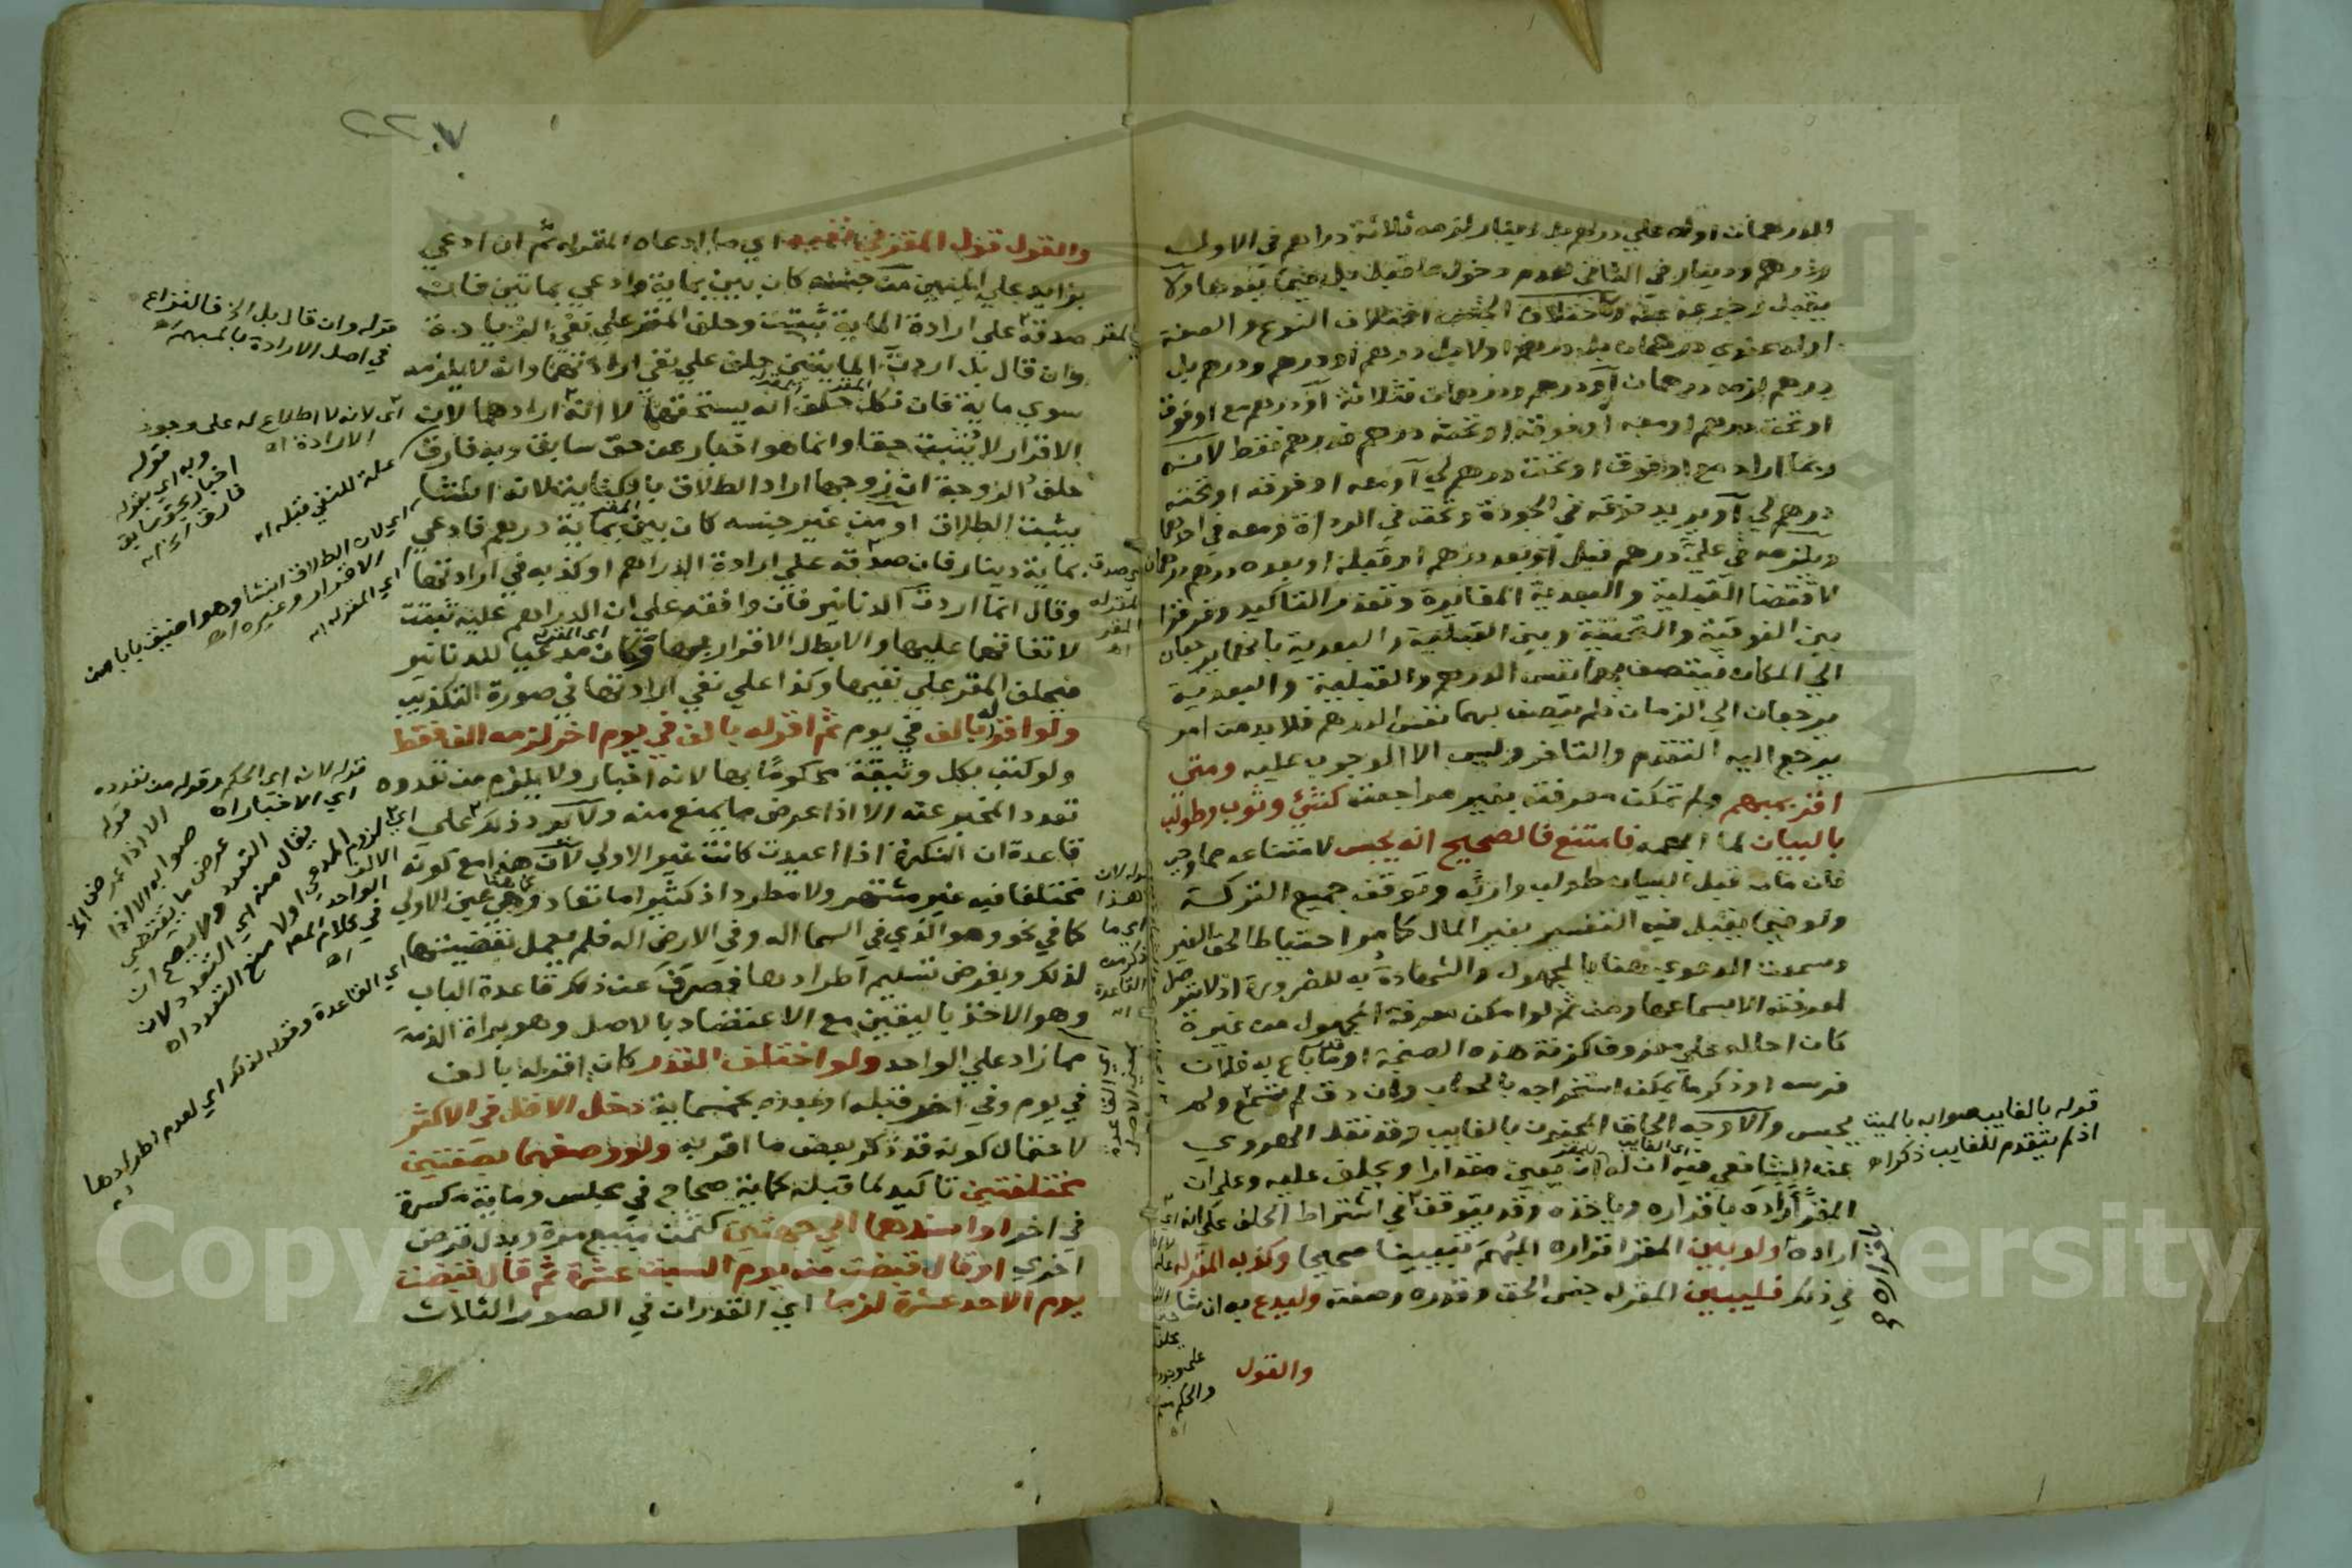 الدرهمان اوله علي درهم بل دينار لزمه ثلاثة دراهم في الاول
ودرهم ودينار في الثاني لعدم دخول ما قبل بل فيما بعدها ولا
يقبل رجوعه عنه وكاختلاف الجنس اختلاف النوع والصفة
اوله عندي درهمان بل درهم اولا بل درهم او درهم ودرهم بل
درهم لزمه درهمان او درهم ودرهمان فثلاثة او درهم مع او فوق
او تحت درهم او معه او فوقه او تحته درهم فدرهم فقط لانه
ربما اراد مع او فوق او تحت درهم لي او معه او فوقه او تحته
درهم لي او يريد فوقه في الجودة وتحته في الرداءة ومعه في احدهما
ويلزمه في علي درهم قبل او بعد درهم او قبله او بعده درهم درهمان
لاقتضا القبلية والبعدية المغايرة وتعذر التاكيد وفرقوا
بين الفوقية والتحتية وبين القبلية والبعدية بانهما يرجعان
الي المكان فيتصف بهما نفس الدرهم والقبلية والبعدية
يرجعان الي الزمان فلم يتصف بهما نفس الدرهم فلا بد من امر
يرجع اليه التقدم والتاخر وليس الا الوجوب عليه ومتي
اقر بمبهم ولم تمكن معرفته بغير مراجعته كشئ وثوب وطولب
بالبيان لما ابهمه فامتنع فالصحيح انه يحبس لامتناعه مما وجب
فان مات قبل البيان طولب وارثه وتوقف جميع التركة
ولو فيما يقبل فيه التفسير بغير المال كما مر احتياطا لحق الغير
وسمعت الدعوي هنا بالمجهول والشهادة به للضرورة اذ لا يتوصل
لمعرفته الا بسماعها ومن ثم لو امكن معرفة المجهول من غيره
كان احاله علي معروف كزنة هذه الصنجة او ما باع به فلان
فرسه او ذكر ما يمكن استخراجه بالحساب وان دق لم تسمع ولم
يحبس والاوجه الحاق المجنون بالغايب وقد نقل الهروي
عن الشافعي فيه ان له ان يعين مقدارا ويحلف عليه وعلي ان
المقر اراده باقراره وياخذه وقد يتوقف في اشتراط الحلف علي انه
اراده ولو بين المقر اقراره المبهم تبيينا صحيحا وكذبه المقر له
في ذلك فليبين المقر له جنس الحق وقدره وصفته وليدع به ان شا
والقول
قوله بالغايب صوابه بالميت
اذ لم يتقدم للغايب ذكر اه
٢٢٠٧
والقول قول المقر في نفيه اي ما ادعاه المقر له ثم ان ادعي
بزايد علي المبين من جنسه كان بين بماية وادعي بماتين فان
صدقه علي ارادة الماية ثبتت وحلف المقر علي نفي الزيادة
وان قال بل اردت المايتين حلف علي نفي ارادتهما وانه لا يلزمه
سوي ماية فان نكل حلف انه يستحقهما لا انه ارادهما لان
الاقرار لا يثبت حقا وانما هو اخبار عن حق سابق وبه فارق
حلف الزوجة ان زوجها اراد الطلاق بالكناية لانه انشا
يثبت الطلاق او من غير جنسه كان بين بماية درهم فادعي
بماية دينار فان صدقه علي ارادة الدراهم او كذبه في ارادتها
وقال انما اردت الدنانير فان وافقه علي ان الدراهم عليه ثبتت
لاتفاقهما عليها والا بطل الاقرار بها وكان مدعيا للدنانير
فيحلف المقر علي نفيها وكذا علي نفي ارادتها في صورة التكذيب
ولو اقر له بالف في يوم ثم اقر له بالف في يوم اخر لزمه الف فقط
ولو كتب بكل وثيقة محكوما بها لانه اخبار ولا يلزم من تعدده
تعدد المخبر عنه الا اذا عرض ما يمنع منه ولا يرد ذلك علي
قاعدة ان النكرة اذا اعيدت كانت غير الاولي لان هذا مع كونه
مختلفا فيه غير مشتهر ولا مطرد اذ كثيرا ما تعاد وهي عين الاولي
كما في نحو وهو الذي في السما اله وفي الارض اله فلم يعمل بقضيتها
لذلك وبفرض تسليم اطرادها فصرف عن ذلك قاعدة الباب
وهو الاخذ باليقين مع الاعتضاد بالاصل وهو براة الذمة
مما زاد علي الواحد ولو اختلف القدر كان اقر له بالف
في يوم وفي اخر قبله او بعده بخمسماية دخل الاقل في الاكثر
لاحتمال كونه قد ذكر بعض ما اقر به ولو وصفهما بصفتين
مختلفتين تاكيد لما قبله كماية صحاح في مجلس وماية مكسرة
في اخر او اسندهما الي جهتين كثمن مبيع مرة وبدل قرض
اخري او قال قبضت منه يوم السبت عشرة ثم قال قبضت
يوم الاحد عشرة لزما اي القدران في الصور الثلاث
قوله وان قال بل الخ فالنزاع
في اصل الارادة بالمبهم اه
اي لانه لا اطلاع له علي وجود
الارادة اه
علة للنفي قبله اه
قوله
وبه اي بقوله
اخبار بحق سابق
فارق الخ اه
اي لان الطلاق انشا وهو اضيق بابا من
الاقرار وغيره اه
اي المقر له اه
قوله لانه اي الحكم وقوله من تعدده
اي الاخبار اه
قوله
الا اذا عرض الخ
صوابه الا اذا
عرض ما يقتضي
التعدد ولا يصح ان
يقال منه اي التعدد لان
اي القاعدة وقوله لذلك اي لعدم اطرادها
اه
Copyright © King Saud University